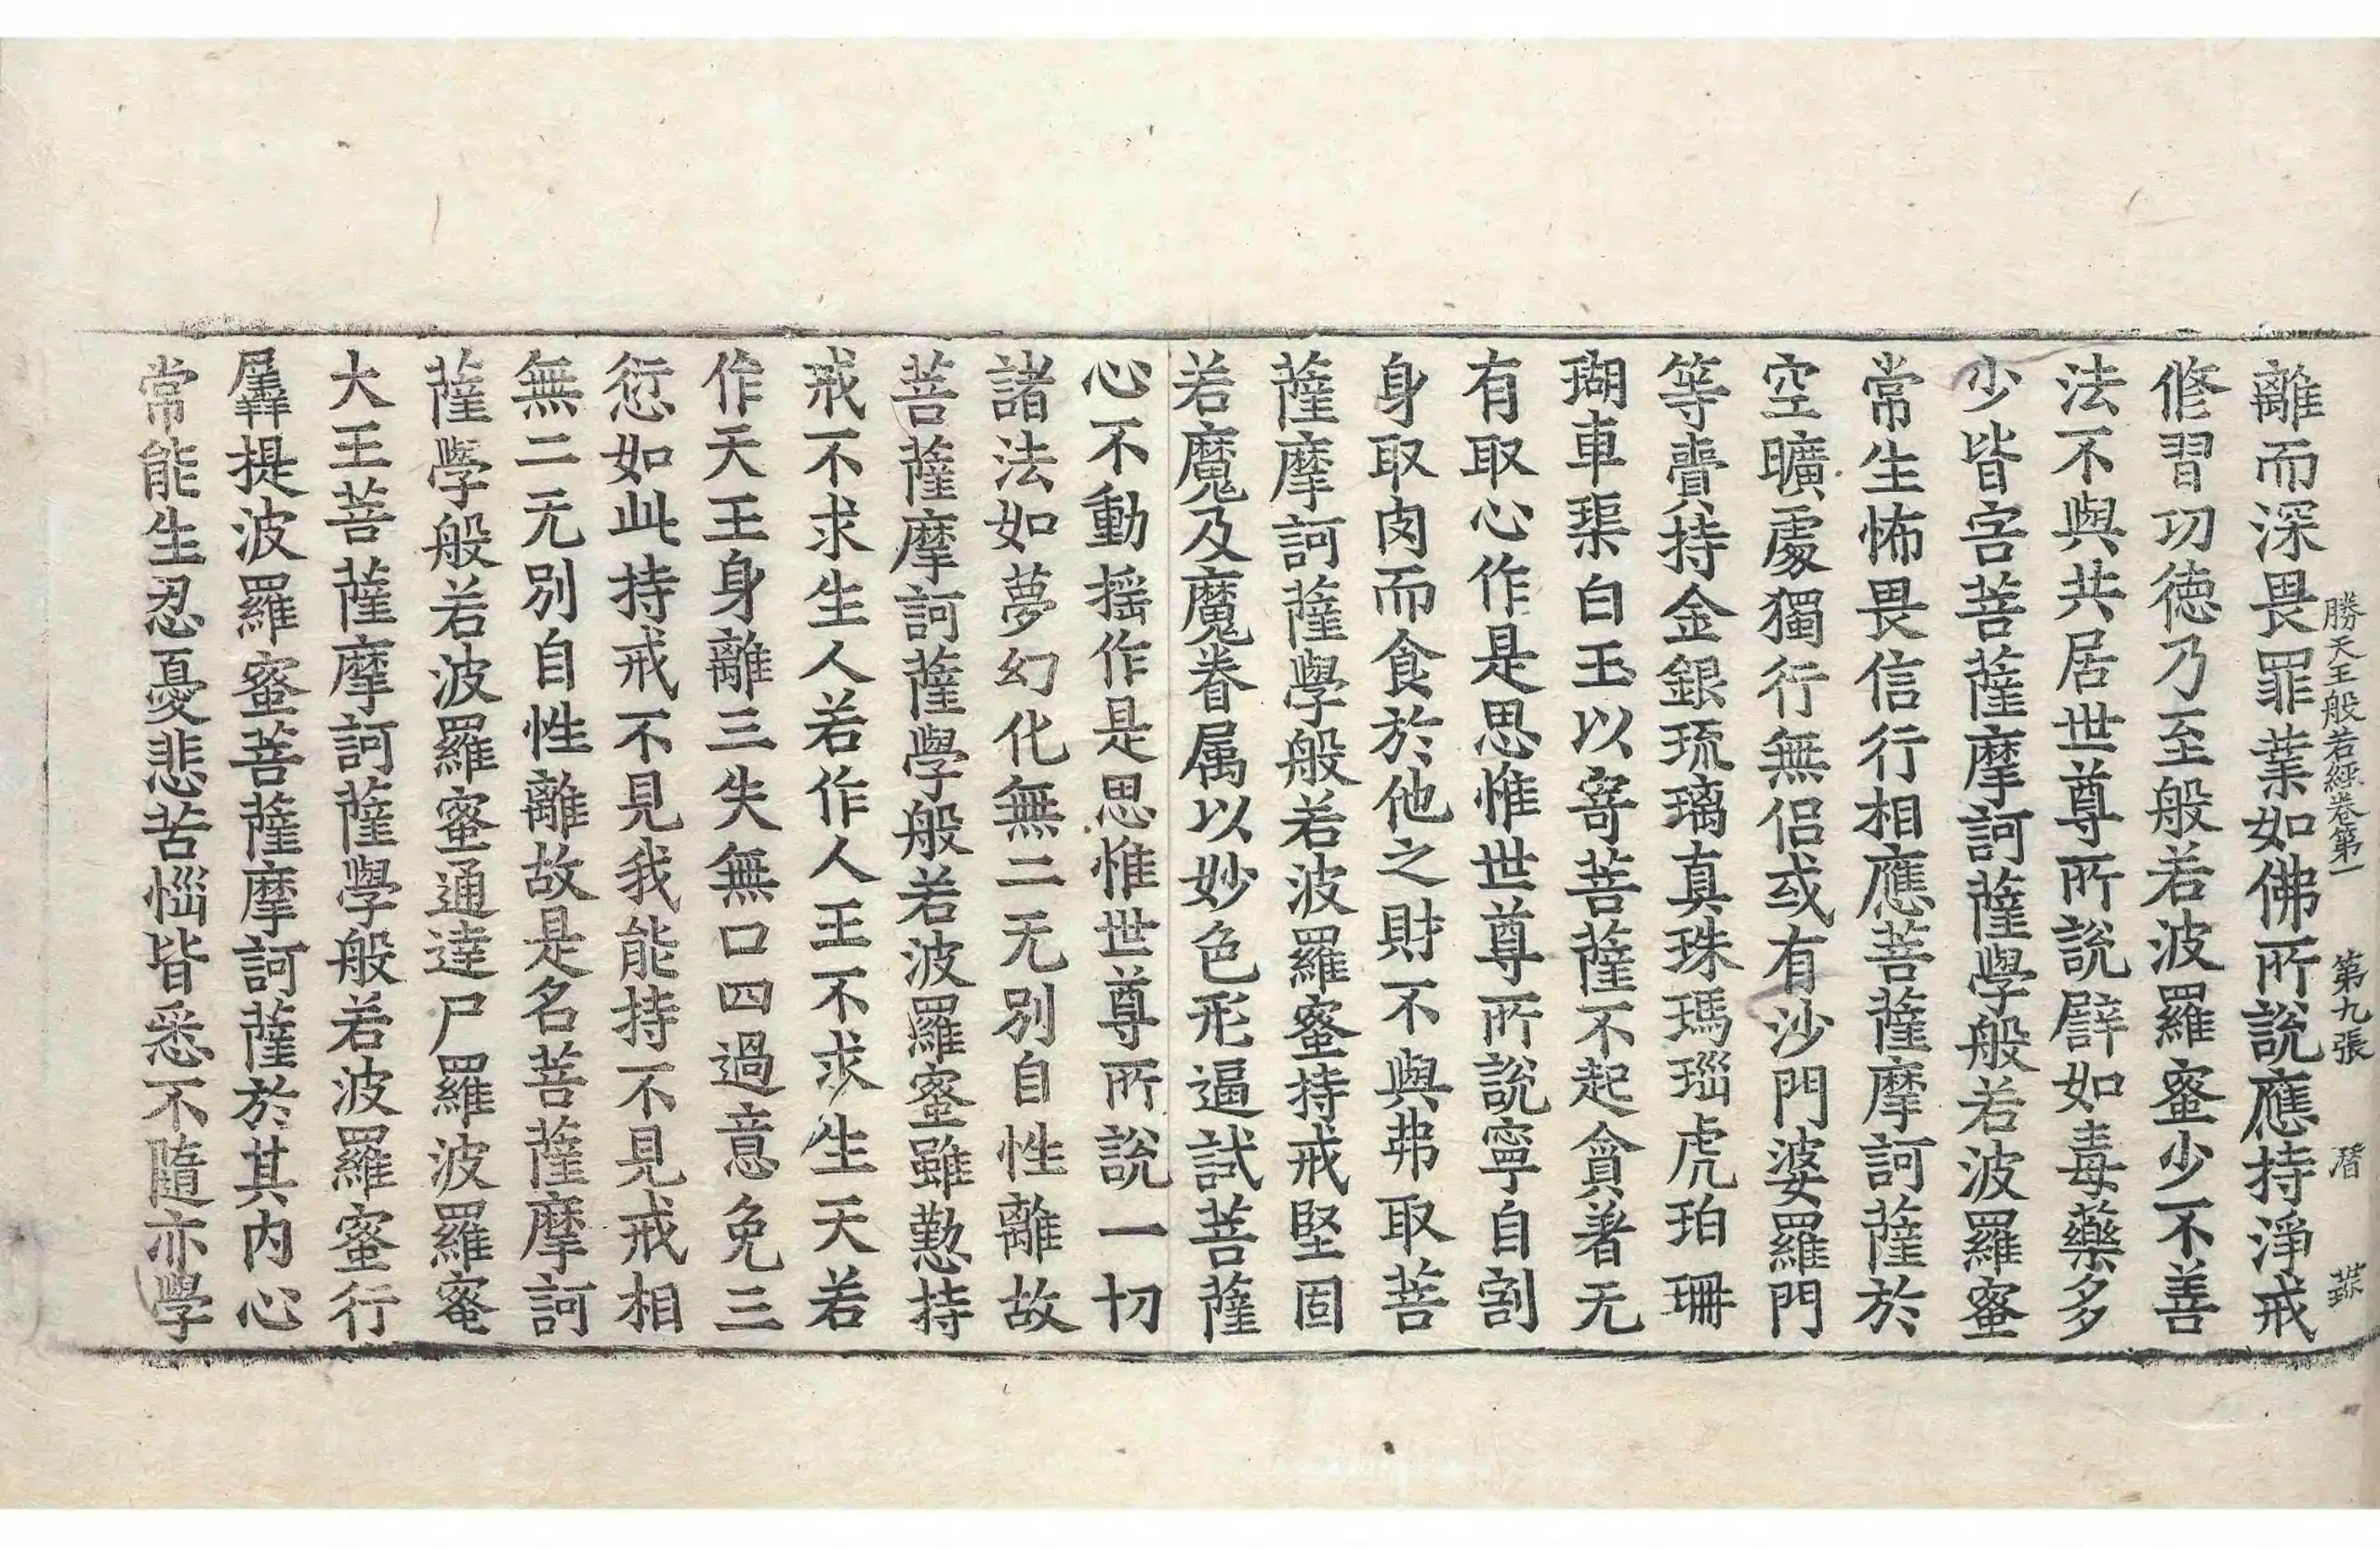 勝天王般若經卷第一 第九張 潛
離而深畏罪業如佛所說應持淨戒
修習功德乃至般若波羅蜜少不善
法不與共居世尊所說辟如毒藥多
少皆害菩薩摩訶薩學般若波羅蜜
常生怖畏信行相應菩薩摩訶薩於
空曠處獨行無侶或有沙門婆羅門
等賷持金銀琉璃真珠瑪瑙虎珀珊
瑚車渠白玉以寄菩薩不起貪著无
有取心作是思惟世尊所說寧自割
身取肉而食於他之財不與弗取菩
薩摩訶薩學般若波羅蜜持戒堅固
若魔及魔眷属以妙色形逼試菩薩
心不動搖作是思惟世尊所說一切
諸法如夢幻化無二无別自性離故
菩薩摩訶薩學般若波羅蜜雖懃持
戒不求生人若作人王不求生天若
作天王身離三失無口四過意免三
愆如此持戒不見我能持不見戒相
無二无別自性離故是名菩薩摩訶
薩學般若波羅蜜通達尸羅波羅蜜
大王菩薩摩訶薩學般若波羅蜜行
羼提波羅蜜菩薩摩訶薩於其内心
常能生忍憂悲苦惱皆悉不隨亦學